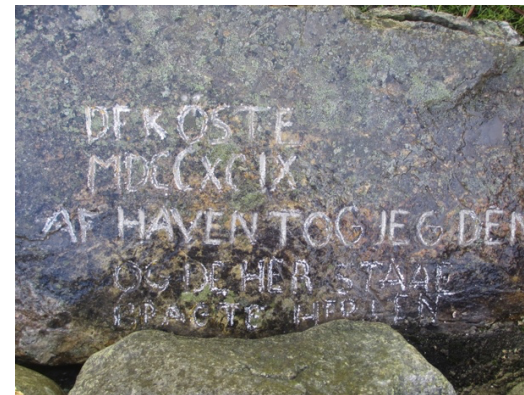 DE KÖSTE
MDCCXCIX
AF HAVEN TOG JEG DEN
OG DE HER STAAE
BRAGTE